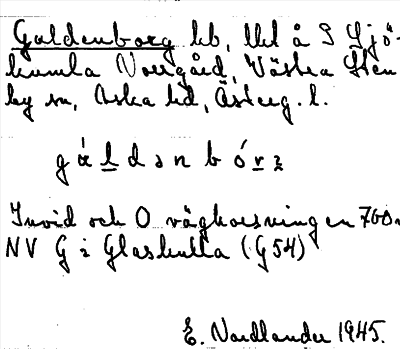 Galdenborg lb, lht å S Sjö-
kumla Norrgård, Västra Sten
by sn, Aska hd, Österg. l.
g á l d ə n b ó r z
Invid och O vägkorsningen 700 m
NV G i Glashulta (G54)
E. Nordlander 1945.